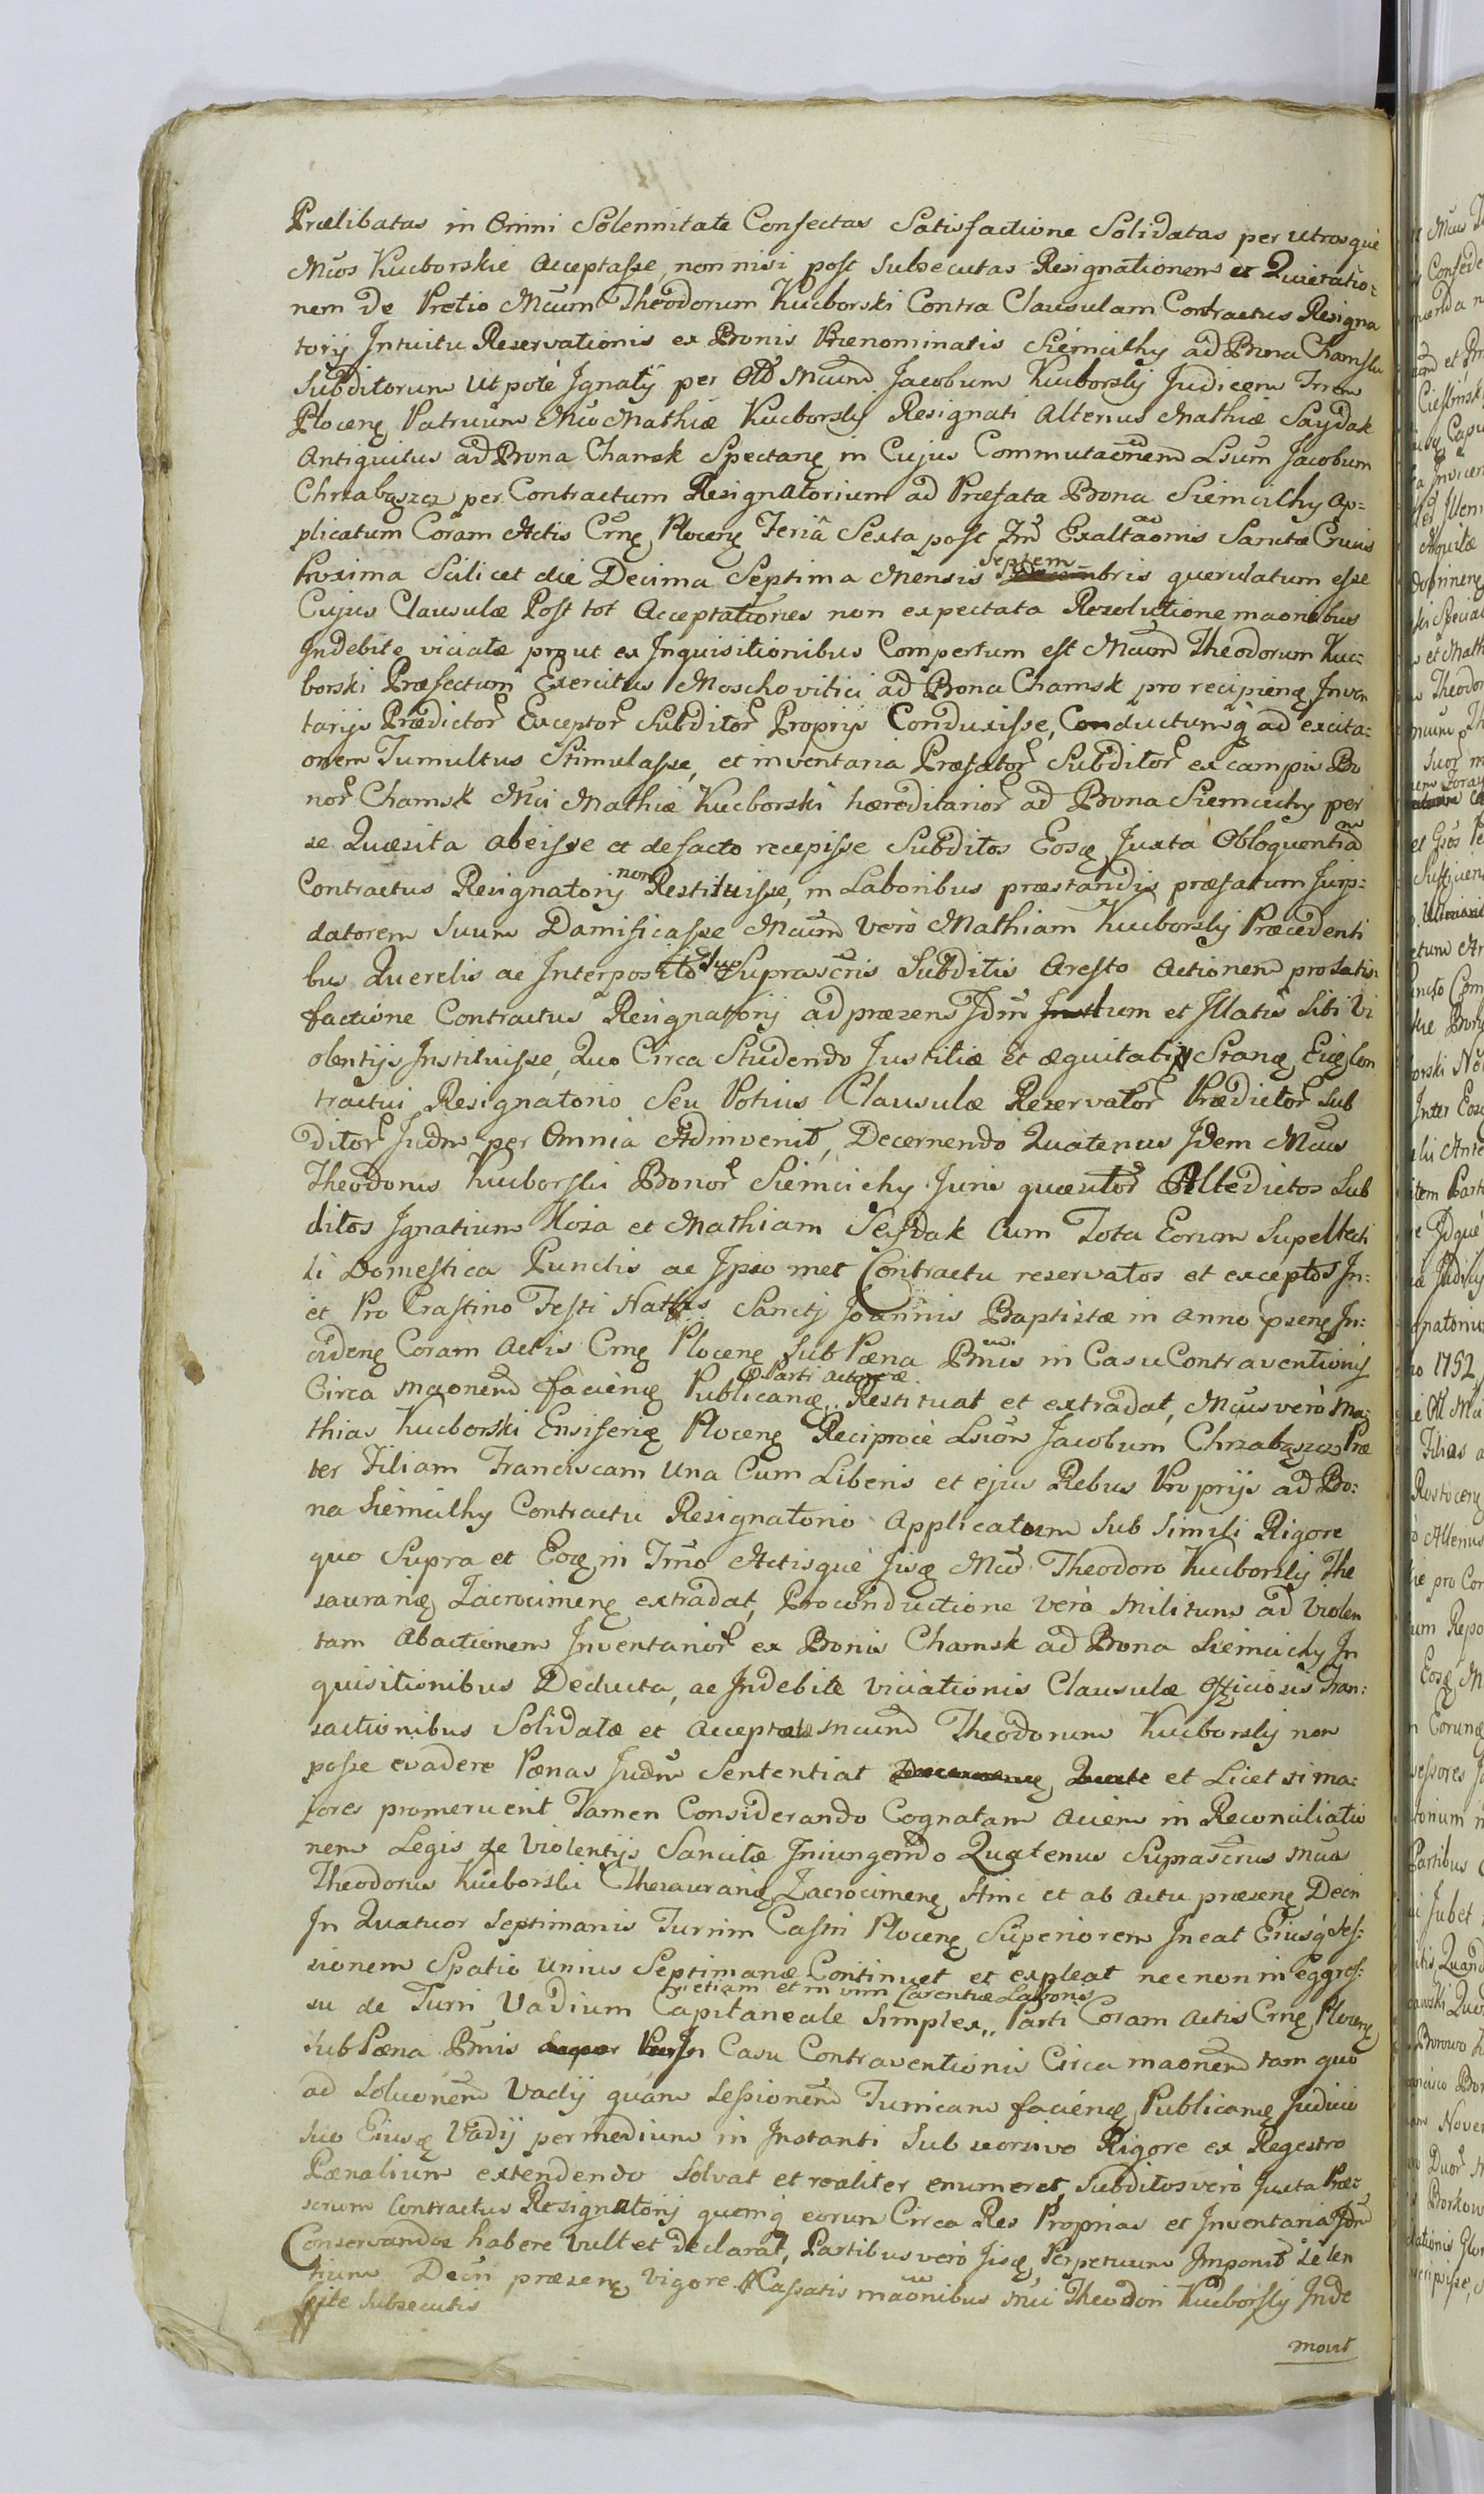 Prælibatas in Omni Solennitate Confectas Satisfactione Solidatas per utrosque
Mcos Kucborskie Acceptasse, non nisi post subsecutas Resignationem et Quietatio=
nem de Pretio Mcum Theodorum Kucborski Contra Clausulam Contractus Resigna
torij Intuitu Reservationis ex Bonis Prænominatis Siemcichy ad Bona Chamsk
Subditorum Utpote Ignatij per Olb Mcum Jacobum Kucborskij Judicem Trrem
Plocens Patruum Mco Mathiæ Kucborskij Resignati Alterius Mathiæ Saydak
Antiquitus ad Bona Chamsk Spectans in Cujus Commutaonem Lsum Jacobum
Chrzabąszcz per Contractum Resignatorium ad Præfata Bona Siemcichy ap=
plicatum Coram Actis Crng Plocens Feria Sexta post Fm Exaltaonis Sanctæ Crucis
Proxima Scilicet die Decima Septima Mensis Septembris querulatum esse
Cujus Clausulæ Post tot Acceptationes non expectata Resolutione maonibus
Indebite viciatæ prout ex Inquisitionibus Compertum est Mcum Theodorum Kuc=
borski Præfectum Exercitus Moschovitici ad Bona Chamsk pro recipiens Inven
tarijs Prædictor Exceptor Subditor Proprijs Conduxisse, Conductumq ad excita=
onem Tumultus Stimulasse, et inventaria Præfator Subditor ex campis Bo
nor Chamsk Mci Mathiæ Kucborski hæreditarior ad Bona Siemcichy per
se Quæsita abeisse et de facto recepisse Subditos Eosq Juxta Obloquentiam
Contractus Resignatorij non Restituisse, in Laboribus præstandis præfatum Jurp=
datorem Suum Damificasse Mcum Vero Mathiam Kucborskij Præcedenti
bus Querelis ac Interposito Sup Suprascris Subditis Aresto Actionem pro Satis=
factione Contractus Resignatorij ad præsens Jdm et Illatis Sibi Vi
olentijs Instituisse, Quo Circa Studendo Justitiæ et æquitati Stans Eiq Con
tractui Resignatorio Seu Potius Clausulæ Reservator Prædictor Sub
ditor Judm per Omnia Adinvenit, Decernendo Quatenus Idem Mcus
Theodorus Kucborski Bonor Siemcichy Juris quæsitor Alledictos Sub
ditos Ignatium Koza et Mathiam Seydak Cum Tota Eorum Supellecti
li Domestica Punctis ac Ipso met Contractu reservatos et exceptos In=
et Pro Crastino Festi Nattis Sancti Joannis Baptistæ in anno psens In=
cidens Coram Actis Crng Plocens Sub Pæna Bnnis in Casu Contraventionis
Circa maonem faciens Publicans Parti Actoreæ Restituat et extradat, Mcus vero Ma=
thias Kucborski Ensiferig Plocens Reciproce Lsum Jacobum Chrzabąszcz Præ
ter Filiam Franciscam Una Cum Liberis et ejus Rebus Proprijs ad Bo=
na Siemcichy Contractu Resignatorio Applicatum Sub Simili Rigore
quo Supra et Eosq in Trmo Actisque Jisq Mco Theodoro Kucborskij The
saurarig Zacrocimens extradat, Pro conductione vero Militum ad Violen
tam Abactionem Inventarior ex Bonis Chamsk ad Bona Siemcichy In
quisitionibus Deducta, ac Indebite Viciationis Clausulæ Officiosis Tran=
sactionibus Solidatæ et Acceptatæ Mcum Theodorum Kucborskij non
posse evadere Pænas Judm Sententiat et Licet si ma=
jores promeruerit Tamen Considerando Cognatam aciem in Reconciliatio
nem Legis de Violentijs Sancitæ Iniungendo Quatenus Suprascrus Mcus
Theodorus Kucborski Thesaurarig Zacrocimens Hinc et ab actu præsens Decri
In Quatuor Septimanis Turrim Castri Plocens Superiorem Ineat Eiusq Ses=
sionem Spatio Unius Septimanæ Continuet et expleat nec non in Eggres=
su de Turri Vadium Capitaneale Simplex, etiam et in vim Carentiæ Laboris Parti Coram Actis Crng Plocens
sub Pæna Bnnis In Casu Contraventionis Circa maonem tam quo
ad Soluonem Vadij quam Sessionem Turricam faciens Publicans Judicio
suo Eiusq Vadij per medium in Instanti Sub seorsivo Rigore ex Regestro
Pænalium extendendo Solvat et realiter enumeret, Subditos vero Juxta Præ=
scrum Contractus Resignatorij quemq eorum Circa Res Proprias et Inventaria Jdm
Conservandos habere Vult et declarat, Partibus vero Jisq Perpetuum Imponit Silen
tium Decri præsens vigore Cassatis maonibus Mci Theodori Kucborskij Inde
bite Subsecutis
movit